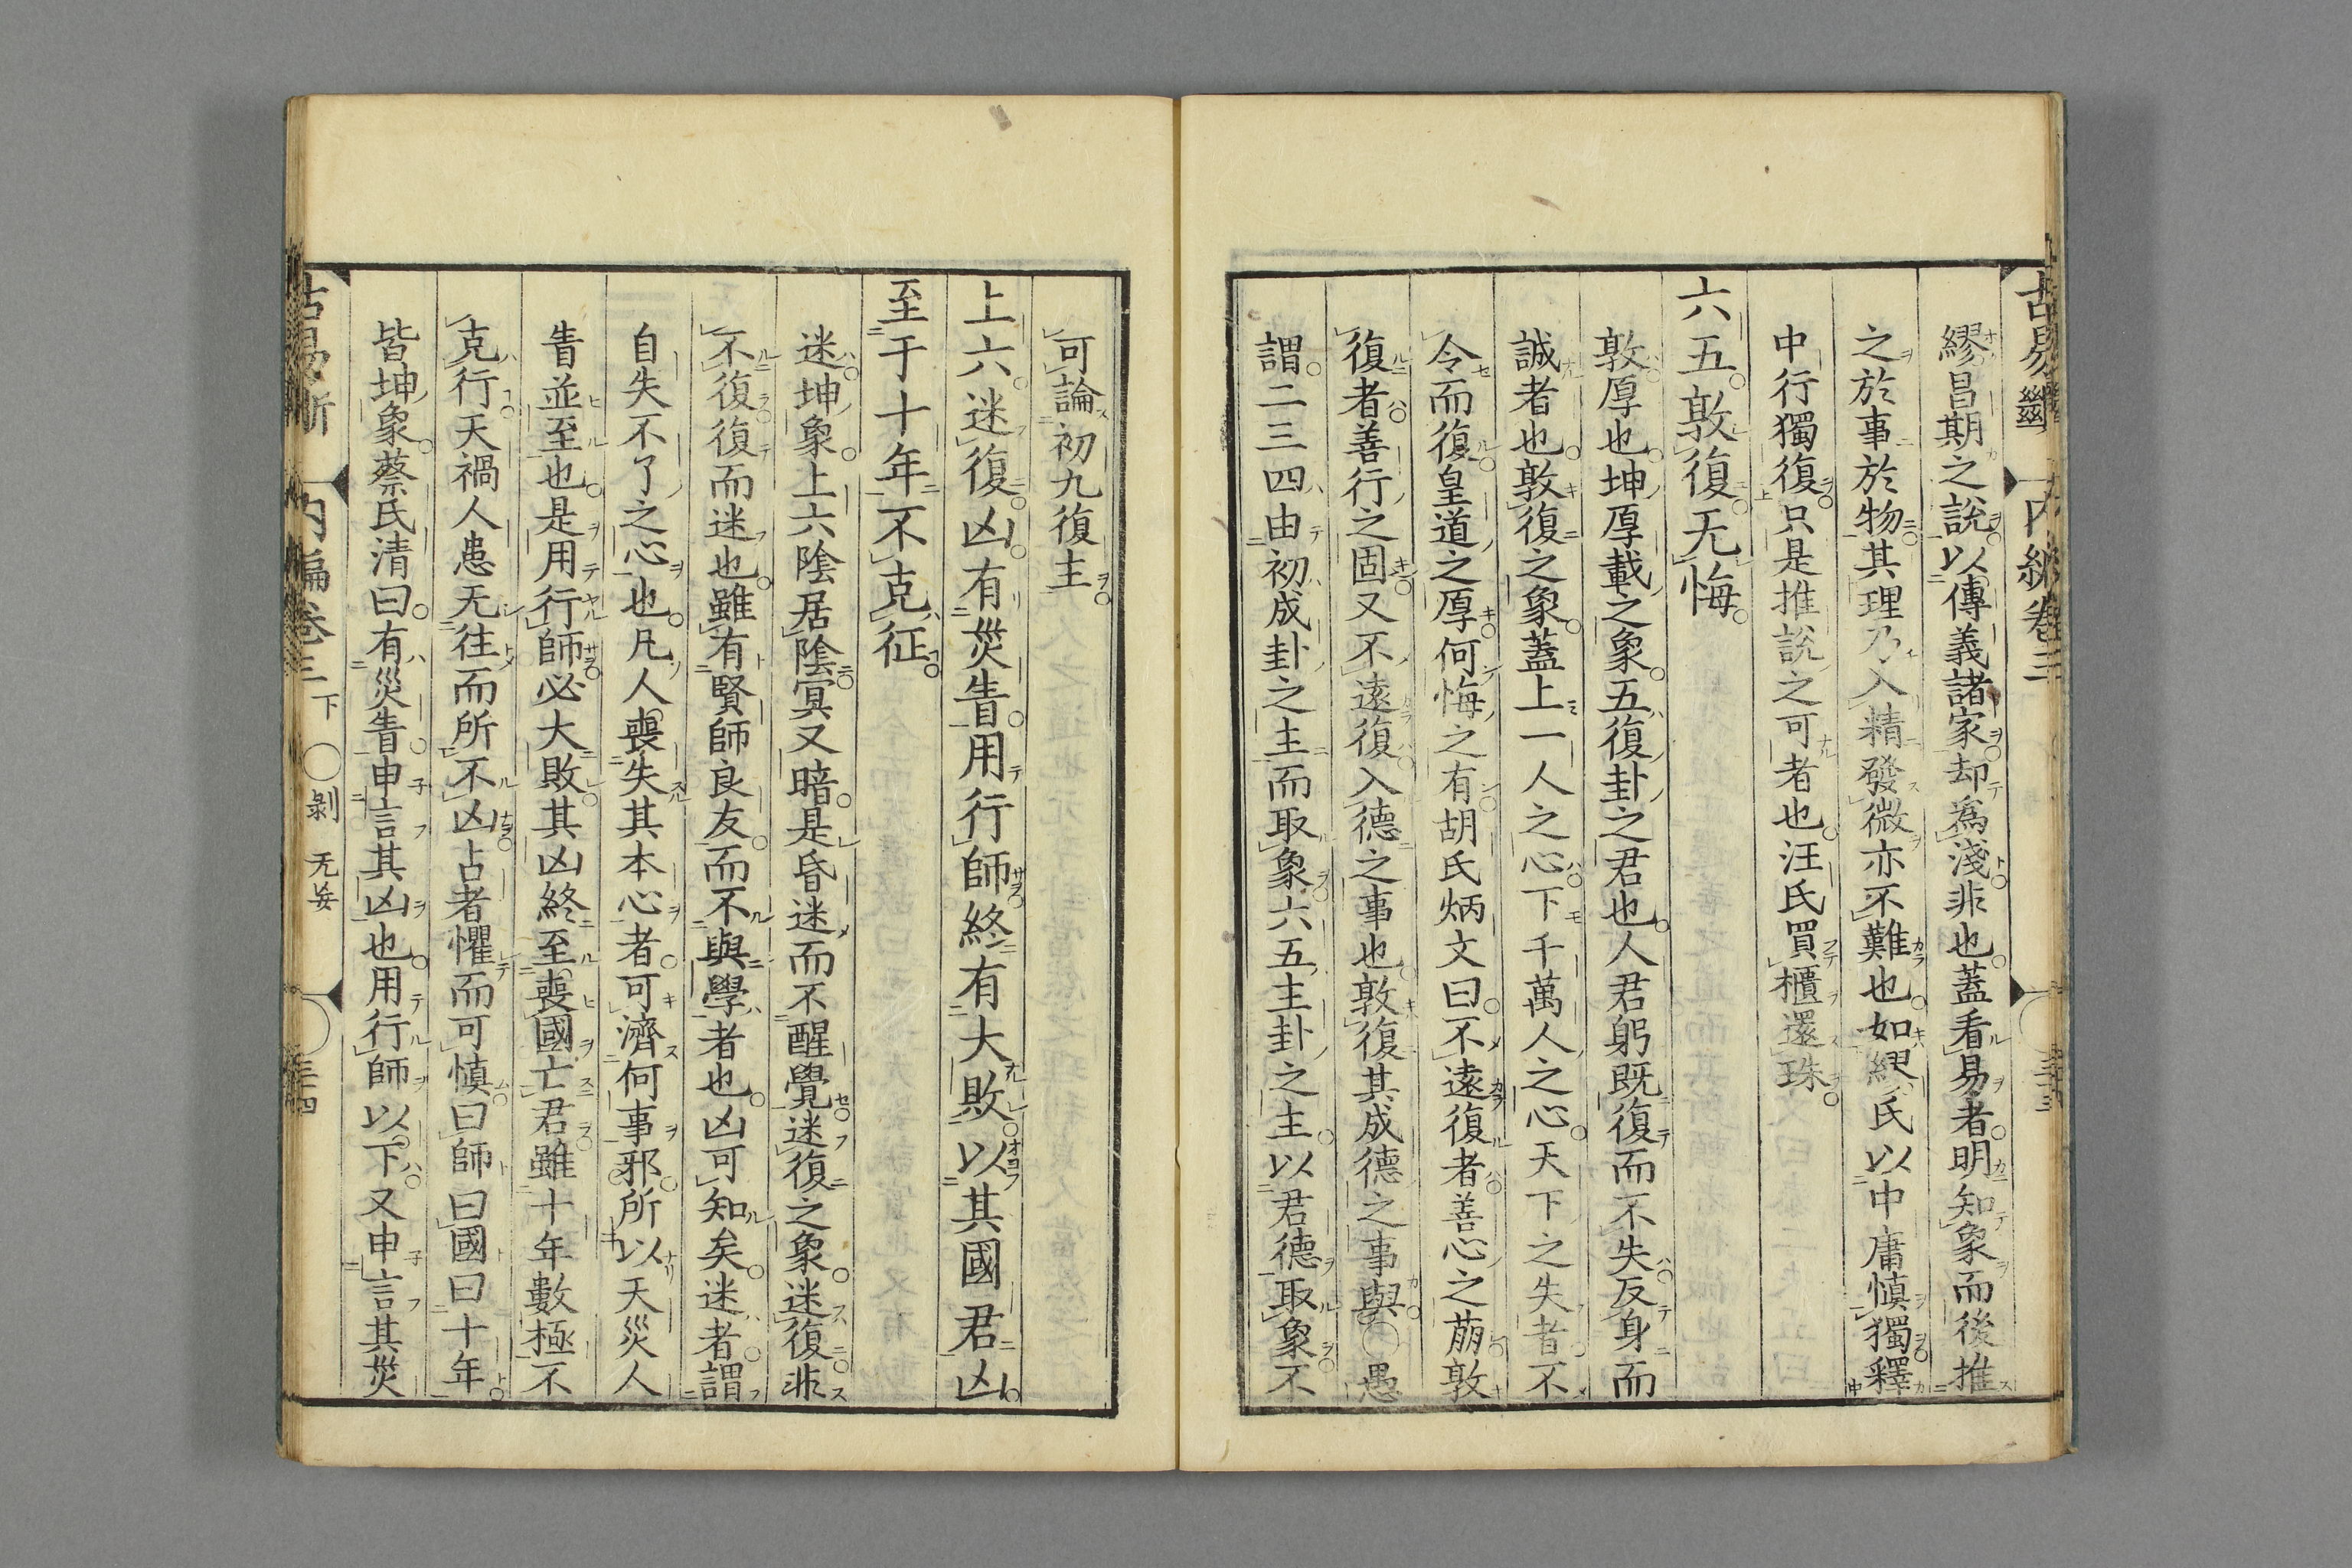 繆昌期之說以傳義諸家却爲淺非也蓋看易者明知象而後推
之於事於物其理乃入精發微亦不難也如繆氏以中庸慎獨釋
中行獨復只是推說之可者也汪氏買櫃還珠
六五敦復无悔
敦厚也坤厚載之象五復卦之君也人君躬既復而不失反身而
誠者也敦復之象蓋上一人之心下千萬人之心天下之失者不
令而復皇道之厚何悔之有胡氏炳文曰不遠復者善心之萠敦
復者善行之固又不遠復入德之事也敦復其成德之事與○愚
謂二三四由初成卦之主而取象六五主卦之主以君德取象不
可論初九復主
上六迷復凶有災眚用行師終有大敗以其國君凶
至于十年不克征
迷坤象上六陰居陰冥又暗是昏迷而不醒覺迷復之象迷復非
不復復而迷也雖有賢師良友而不與學者也凶可知矣迷者謂
自失不了之心也凡人喪失其本心者可濟何事邪所以天災人
眚並至也是用行師必大敗其凶終至喪國亡君雖十年數極不
克行天禍人患无往而所不凶占者懼而可慎曰師曰國曰十年
皆坤象蔡氏清曰有災眚申言其凶也用行師以下又申言其災
古易斷 內編卷三 下 ○剝 无妄 ○三十四